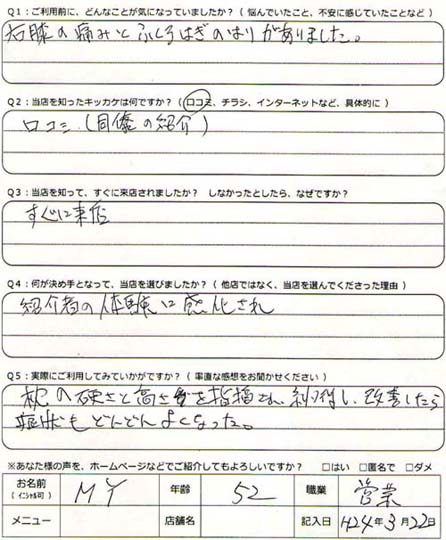 Q1：ご利用前に、どんなことが気になっていましたか？（悩んでいたこと、不安に感じていたことなど）
右膝の痛みとふくらはぎのはりがありました。
Q2：当店を知ったキッカケは何ですか？（口コミ、チラシ、インターネットなど、具体的に）
口コミ（同僚の紹介）
Q3：当店を知って、すぐに来店されましたか？　しなかったとしたら、なぜですか？
すぐに来店
Q4：何が決め手となって、当店を選びましたか？（他店ではなく、当店を選んでくださった理由）
紹介者の体験に感化され
Q5：実際にご利用してみていかがですか？（率直な感想をお聞かせください）
枕の硬さと高さを指摘され、納得し、改善したら
症状もどんどんよくなった。
※あなた様の声を、ホームページなどでご紹介してもよろしいですか？　□はい　□匿名で　□ダメ
お名前（イニシャル可）　MY　年齢　52　職業　営業
メニュー　店舗名　記入日　H24年3月22日